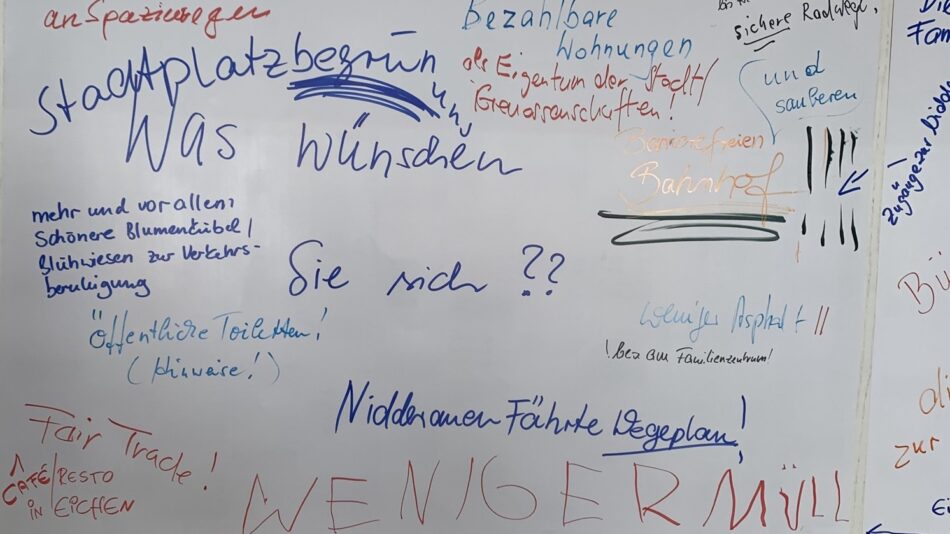 an Spazierwegen
Stadtplatzbegrünung
Was wünschen
Sie sich ??
Bezahlbare
Wohnungen
als Eigentum der Stadt/
Genossenschaften!
sichere Radwege,
und
sauberen
Barrierefreien
Bahnhof
mehr und vor allem
Schönere Blumenkübel/
Blühwiesen zur Verkehrs-
beruhigung
Öffentliche Toiletten!
(Hinweise!)
weniger Asphalt !!
! bes am Familienzentrum!
Nidderauen Fährte Wegeplan!
Fair Trade!
1 CAFÉ/RESTO
in EICHEN
WENIGER MÜLL
Fami
Zugänge zur Nidder
Bü
zur